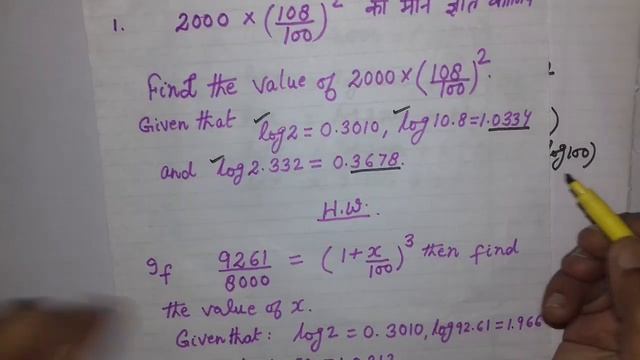 1. 2000 × (108/100)² का मान ज्ञात
Find the value of 2000 × (108/100)².
Given that log2 = 0.3010, log10.8 = 1.0334
and log2.332 = 0.3678.
log100)
H.W.
If 9261/8000 = (1 + x/100)³ then find
the value of x.
Given that: log2 = 0.3010, log92.61 = 1.966